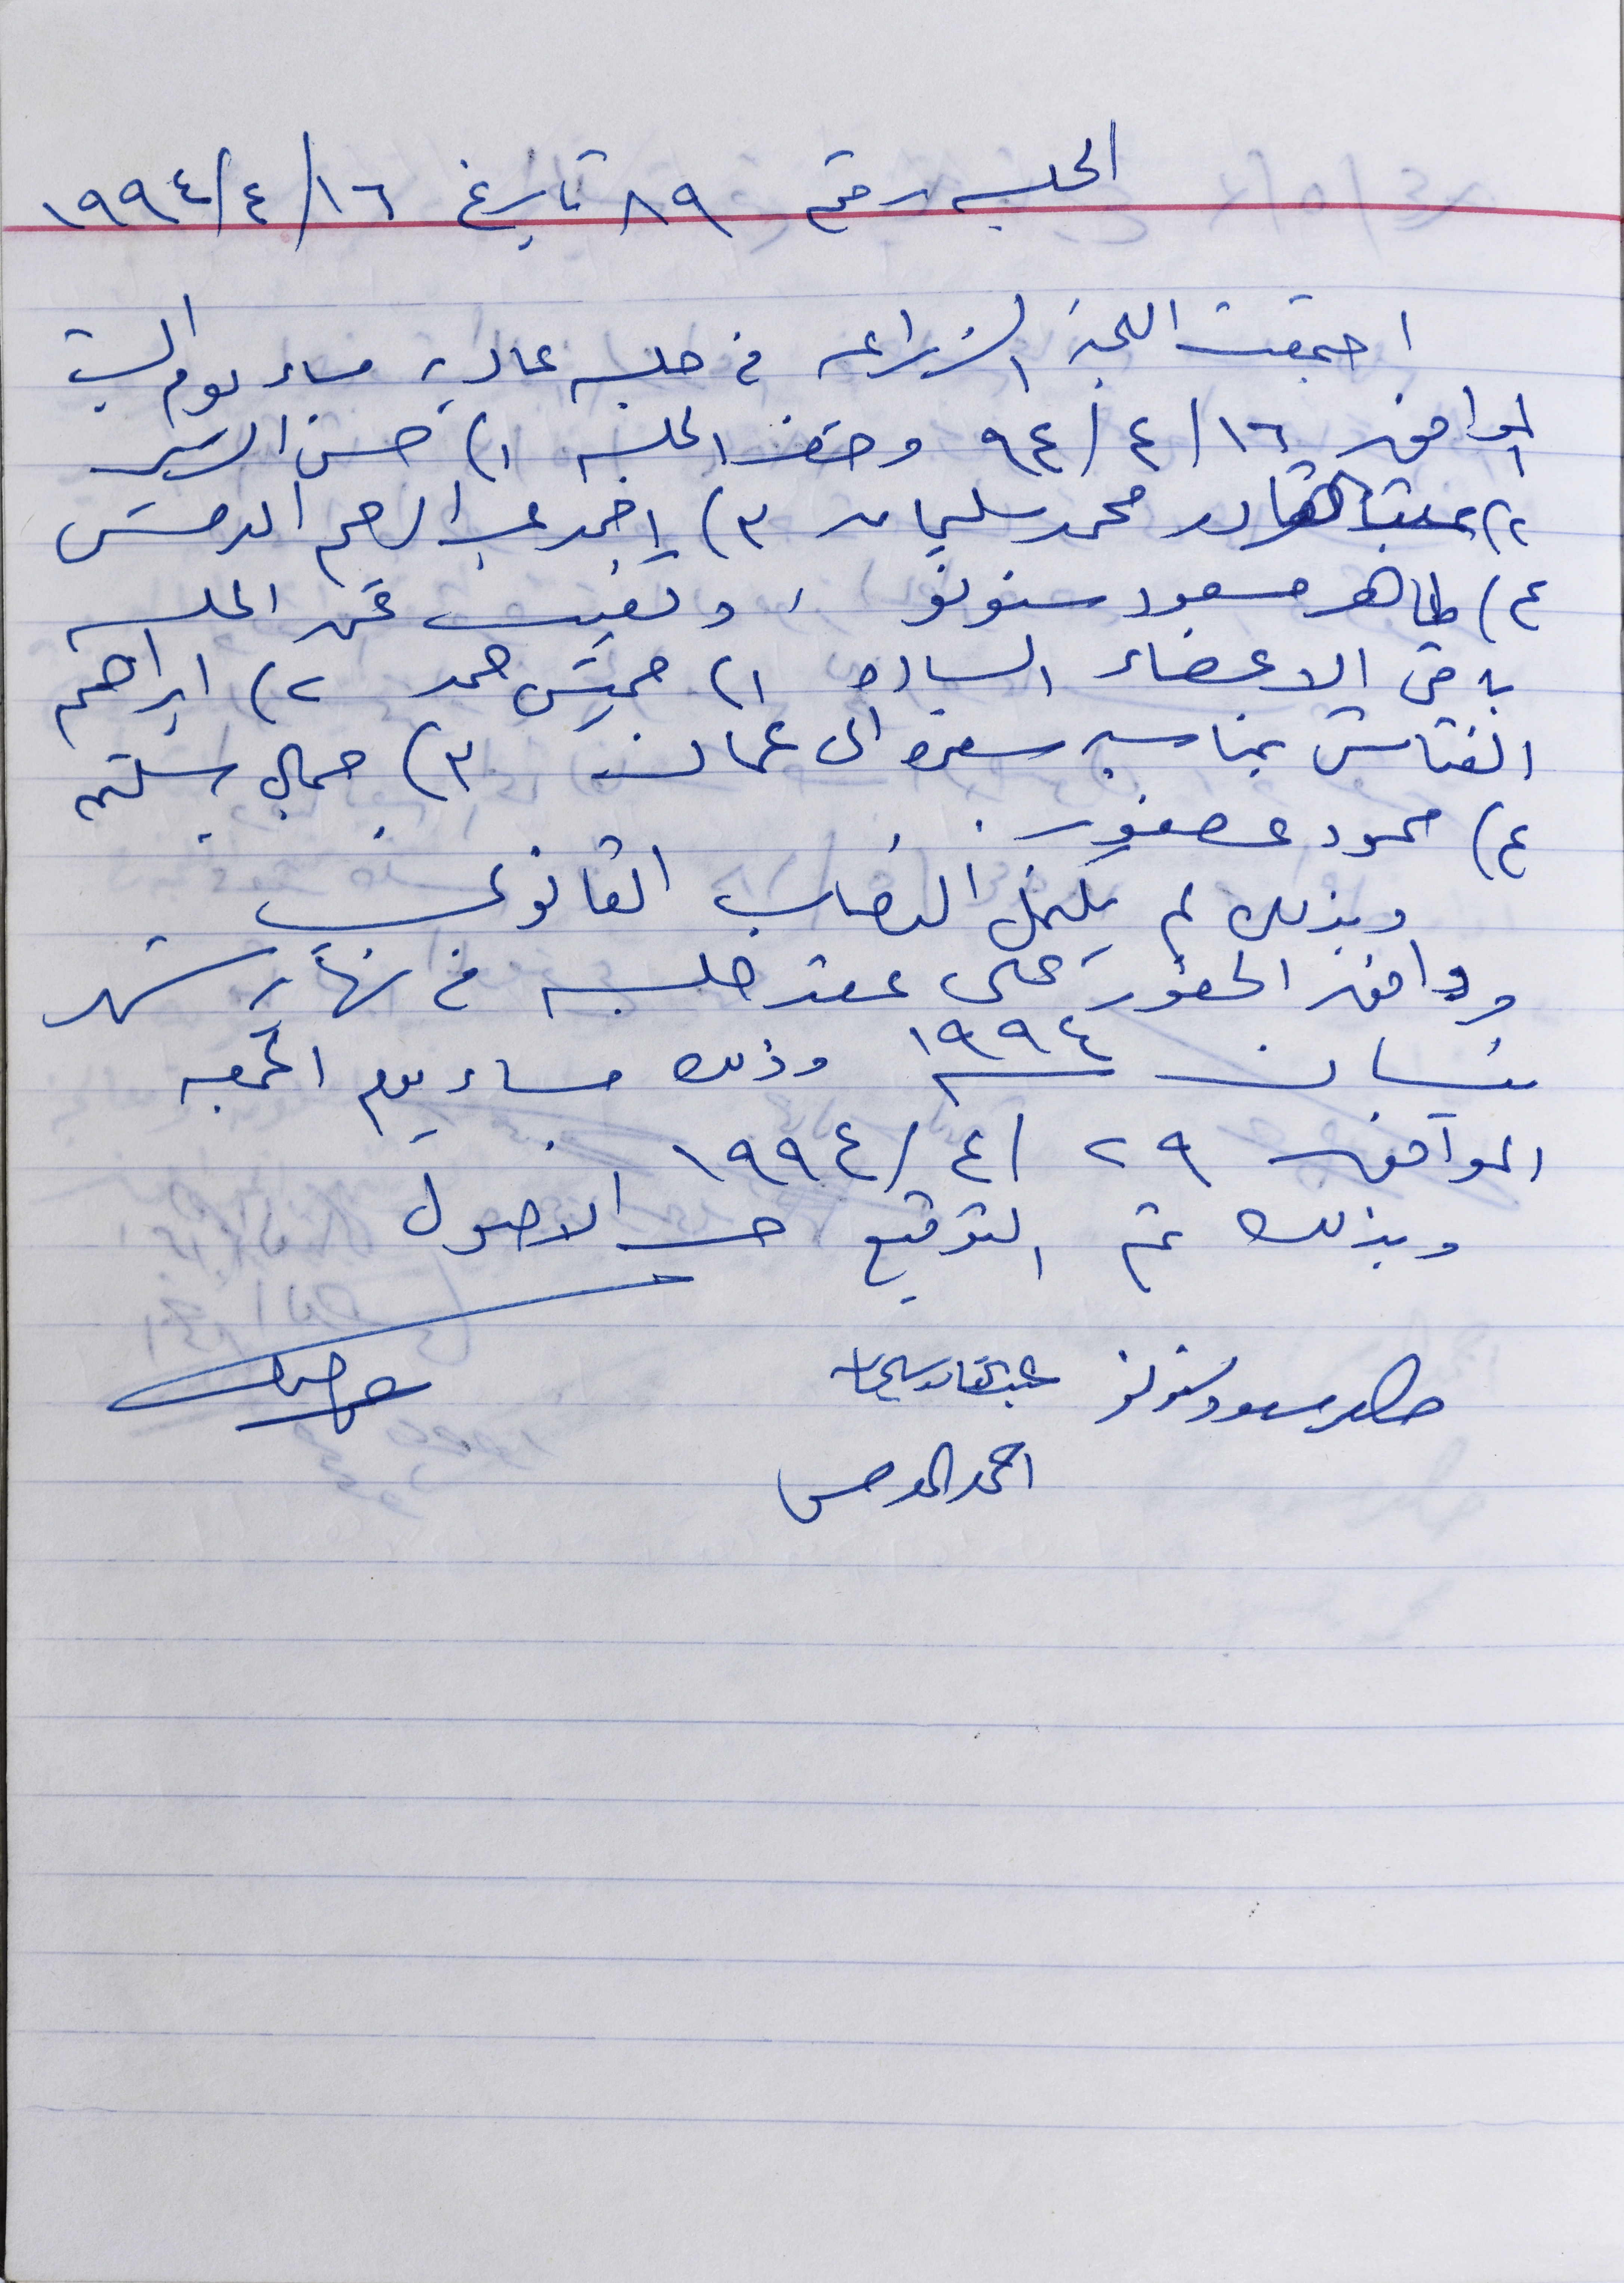 الجلسه رقم ٨٩ تاريخ ١٦/٤/١٩٩٤
اجتمعت اللجنة الزراعيه في جلسه عاديه مساء يوم السبت
الموافق ١٦/٤/٩٤ وحضر الجلسه ١) حسن السير
٢) عبد القادر محمد سليمان ٣) احمد عبد الرحيم الدمس
٤) طاهر مسعود سنونو، وتغيب عن الجلسه
باقي الاعضاء الساده ١) خميس حمد ٢) ابراهيم
الفتاش بمناسبه سفره الى عمان ٣) جمال
٤) محمود عصفور.
وبذلك لم يكتمل النصاب القانوني
ووافق الحضور على عقد جلسه في نهاية شهر
نيسان ١٩٩٤ وذلك مساء يوم الجمعه
الموافق ٢٩/٤/١٩٩٤
وبذلك تم التوقيع حسب الاصول
طاهر مسعود سنونو عبد القادر سليمان
احمد الدمس